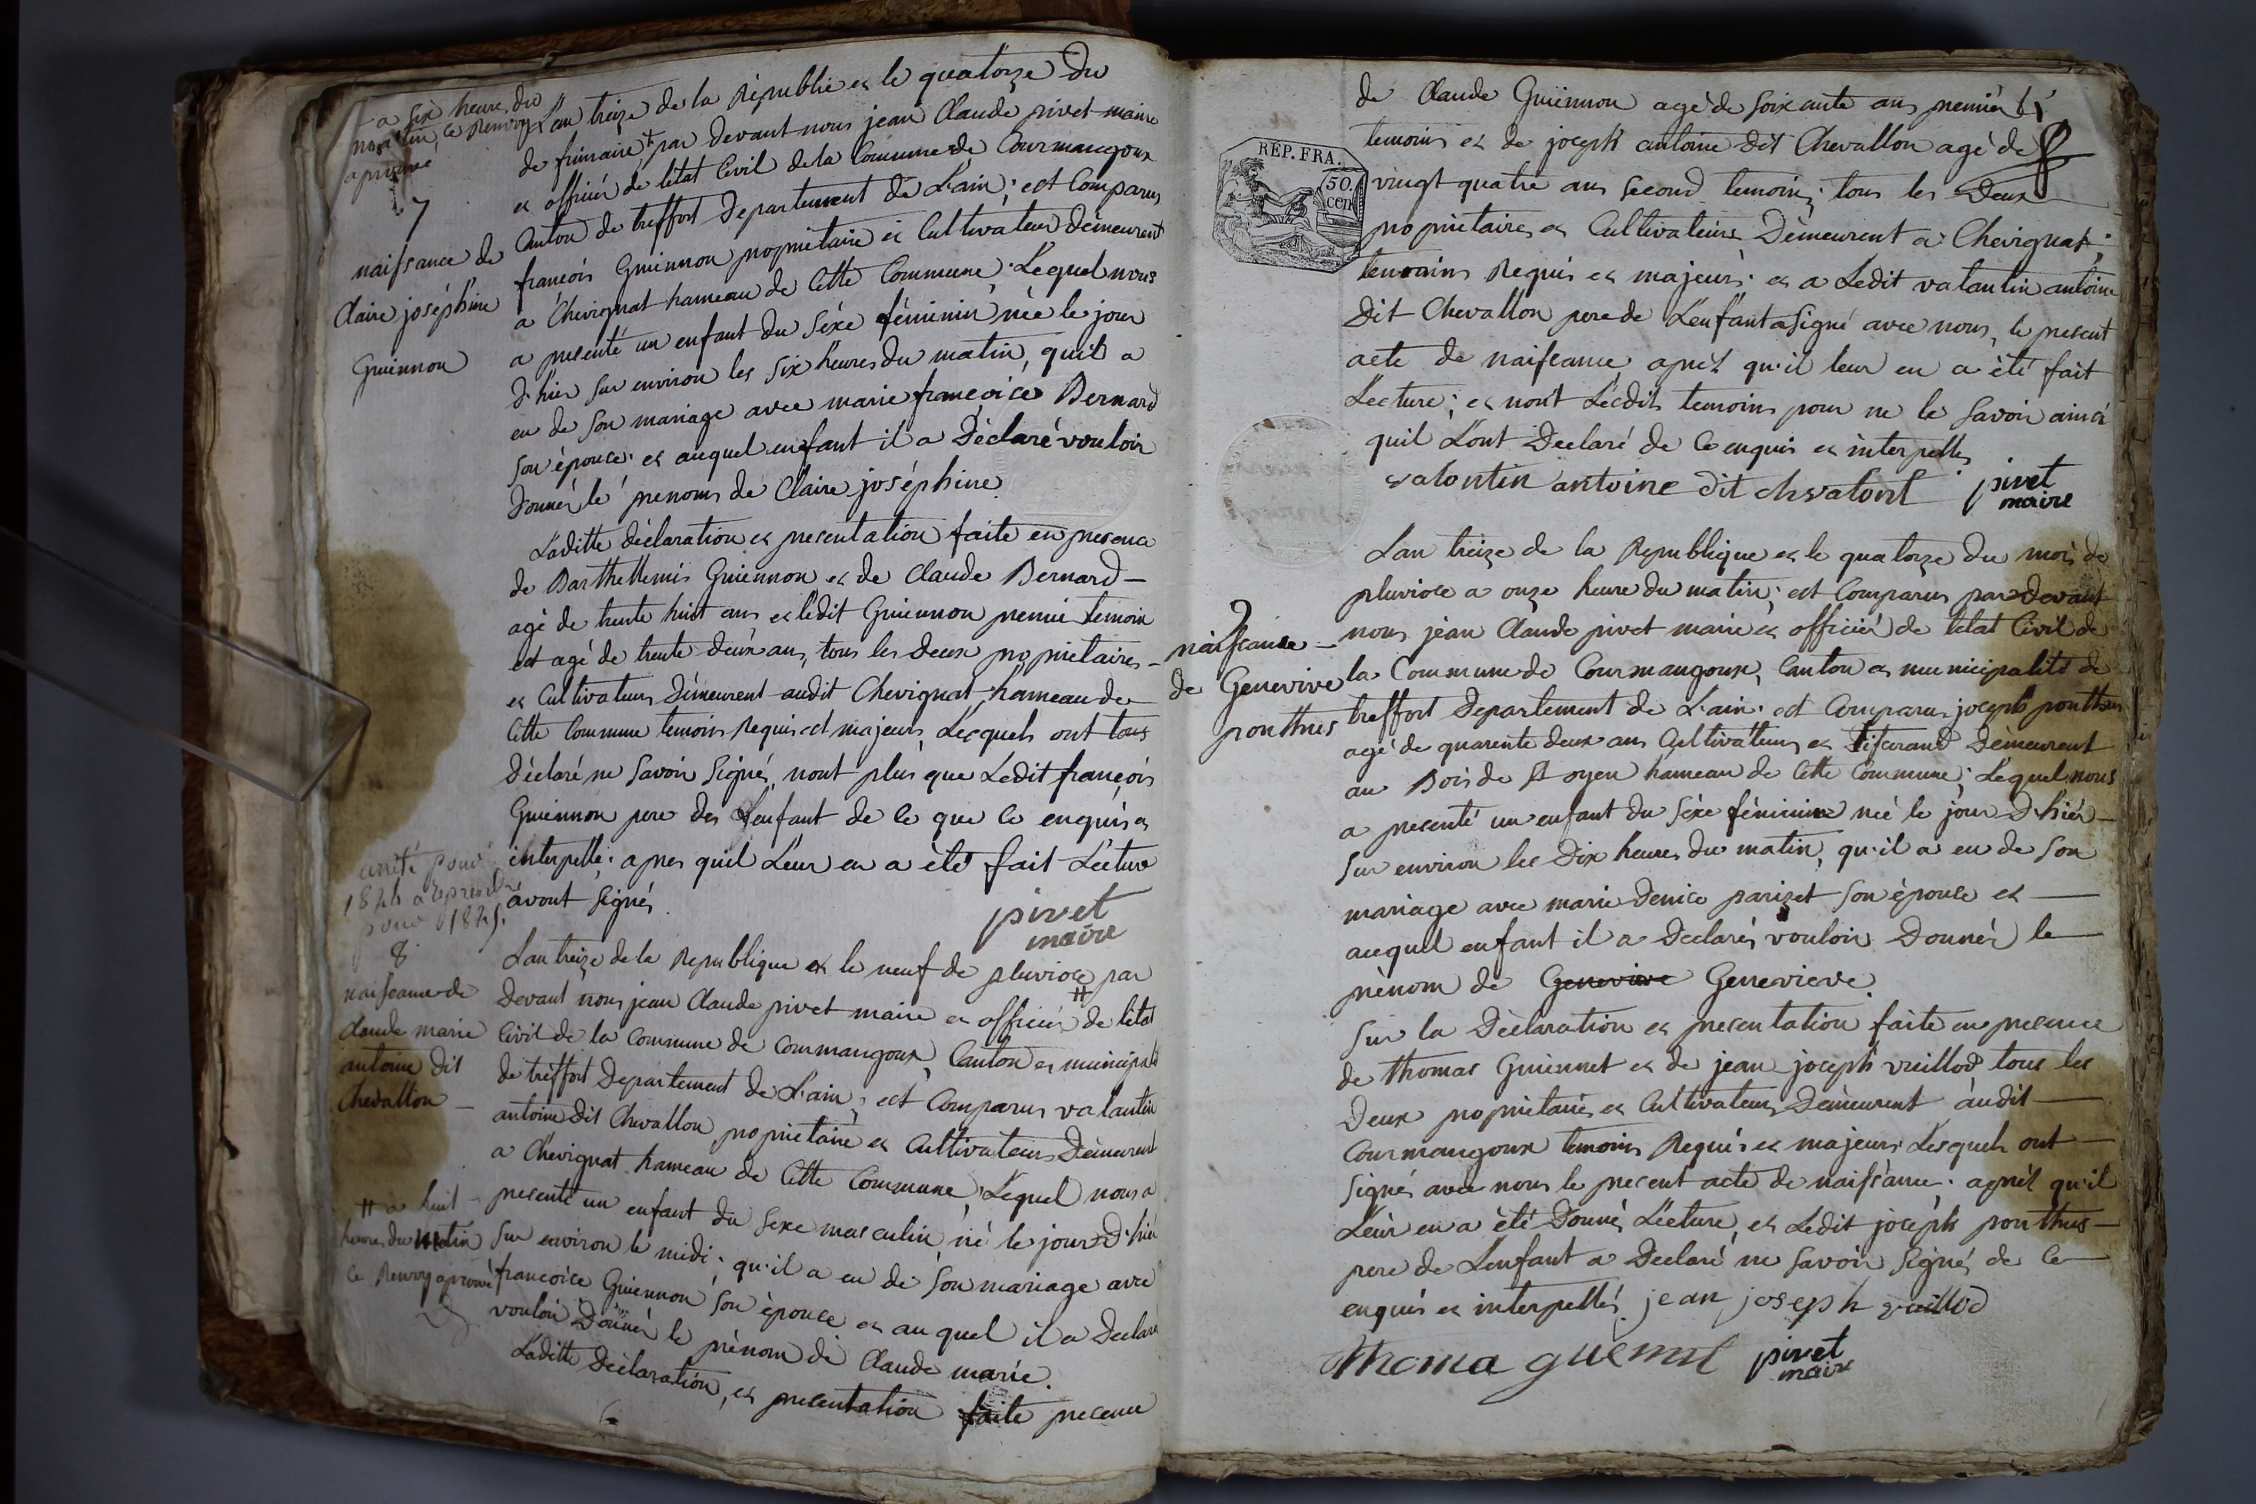 a six heure du
matin, ce Renvoy
aprouvé
7
naissance de
Claire joséphine
Guiennon
L'an treize de la Republie et le quatorze du
de frimaire + par devant nous jean Claude pivet maire
et officier de letat Civil de la Commune de Courmangoux
Canton de treffort Departement de L'ain; est Comparus
francois Guiennon propriétaire et Cultivateur démeurent
a Chevignat hameau de Cette Commune; Lequel nous
a presenté un enfant du séxe féminin née le jour
d'hier sur environ les six heures du matin, quil a
eu de son mariage avec marie francoice Bernard
son épouce; et auquel enfant il a Déclaré vouloir
donner le prenoms de Claire joséphine
Laditte déclaration et presentation faite en presence
de Barthellemi Guiennon et de Claude Bernard
agé de trente huit ans et ledit Guiennon premier temoin
est agé de trente deux ans, tous les deux propriétaires
et Cultivateurs démeurent audit Chevignat hameau de
Cette Commune temoins Requis et majeurs, Lesquels ont tous
déclaré ne savoir signé, nont plus que Ledit francois
Guiennon pere de L'enfant de ce que ce enquis et
interpellé; apres quil Leur en a été fait Lécture
avont signés
pivet
maire
arrêté pour
1824 a reprendre
pour 1825.
8
naissance de
claude marie
antoine dit
Chevallon
L'an treize de la Republique et le neuf de pluviose par
devant nous jean Claude pivet maire et officier # de létat
Civil de la Commune de Courmangoux, Canton et municipalité
de treffort Departement de L'ain; est Comparus valantin
antoine dit Chevallon propriétaire et Cultivateur Démeurent
a Chevignat hameau de Cette Commune, Lequel nous a
# a huit
heures du matin
ce Renvoy aprouvé
presenté un enfant du sexe masculin né le jour d'hier
sur environ le midi; qu'il a eu de son mariage avec
francoice Guiennon son épouce et au quel il a Declaré
vouloir Donner le prénom de Claude marie.
Laditte Déclaration, et presentation faite presence
de Claude Guiennon agé de soixante ans premier
temoins et de joseph antoine dit Chevallon agé de
vingt quatre ans second temoins; tous les deux
propriétaires et Cultivateurs Démeurent a Chevignat;
temoins Requis et majeurs; et a Ledit valantin antoine
dit Chevallon pere de L'enfant a signé avec nous, le present
acte de naissance aprèz qu'il leur en a été fait
Lecture; et nont Lesdits temoins pour ne le savoir ainci
quil L'ont Declaré de ce enquis et interpellés
valontin antoine dit chvalont
pivet
maire
REP. FRA.
50.
cen
9
naissance
de Genevive
ponthus
Lan treize de la Republique et le quatorze du mois de
pluviose a onze heure du matin; est Comparus par devant
nous jean Claude pivet maire et officiér de létat Civil de
la Commune de Courmangoux, Canton et municipalité de
treffort Departement de L'ain; est Comparus joseph ponthus
agé de quarente deux ans Cultivateur et tisserand Démeurent
au Bois de St oyen hameau de Cette Commune; Lequel nous
a presenté un enfant du séxe féminine née le jour d'hiér
sur environ les Dix heures du matin, qu'il a eu de son
mariage avec marie Denice pariset son épouce et
auquel enfant il a Declarés vouloir Donnér le
prénom de Genevive Genevieve
sur la Déclaration et presentation faite en presence
de thomas Guiennet et de jean joseph vuillod tous les
Deux propriétaires et Cultivateurs Démeurent audit
Courmangoux temoins Requis et majeurs Lesquels ont
signés avec nous le present acte de naissance; aprèz qu'il
Leur en a été Donné Lécture, et Ledit joseph ponthus
pere de L'enfant a Declaré ne savoir signé, de ce
enquis et interpellés
jean joseph vuillod
Thoma guennet
pivet
maire